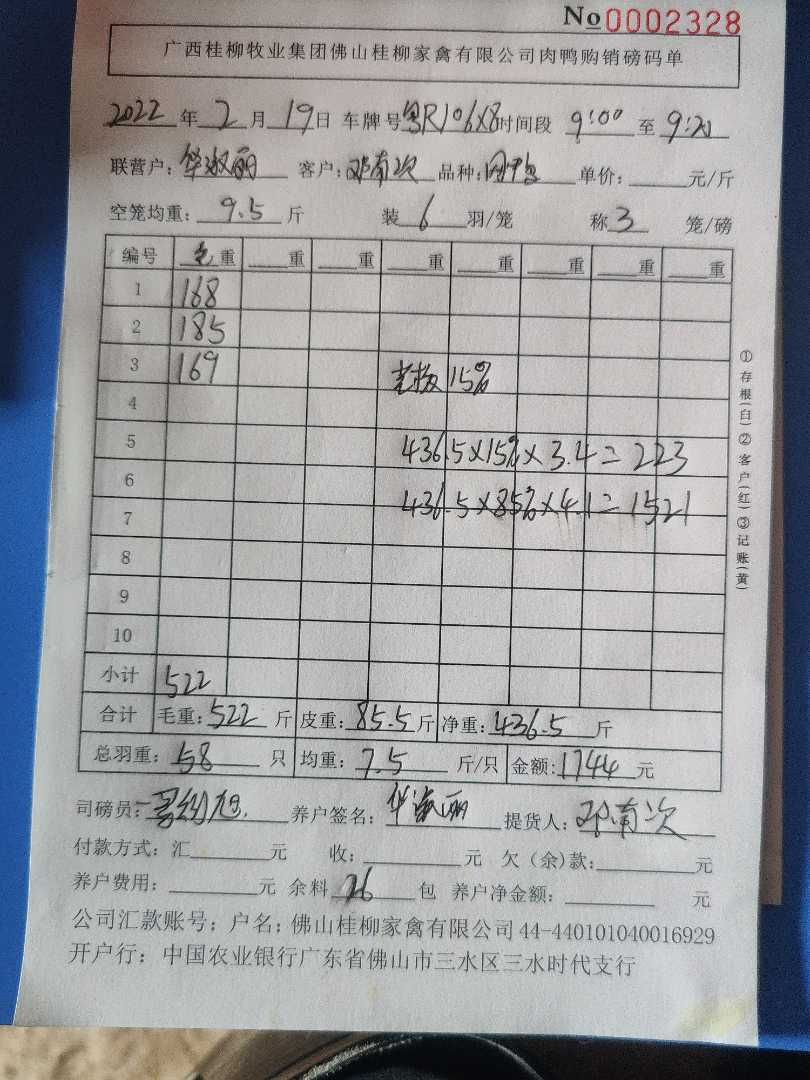 No 0002328
广西桂柳牧业集团佛山桂柳家禽有限公司肉鸭购销磅码单
2022年2月19日 车牌号粤R106X8时间段 9:00至9:20
联营户:华淑丽 客户:邓南次 品种: 单价: 元/斤
空笼均重:9.5斤 装6羽/笼 称3笼/磅
编号 毛重 重 重 重 重 重 重 重
1 168
2 185
3 169
15%
4
5 436.5×15%×3.4=223
6
7 436.5×85%×4.1=1521
8
9
10
小计 522
合计 毛重:522斤 皮重:85.5斤 净重:436.5斤
总羽重:58只 均重:7.5斤/只 金额:1744元
司磅员: 养户签名:华淑丽 提货人:邓南次
付款方式:汇 元 收: 元 欠(余)款: 元
养户费用: 元 余料26包 养户净金额: 元
公司汇款账号;户名;佛山桂柳家禽有限公司44-440101040016929
开户行:中国农业银行广东省佛山市三水区三水时代支行
①存根(白)②客户(红)③记账(黄)